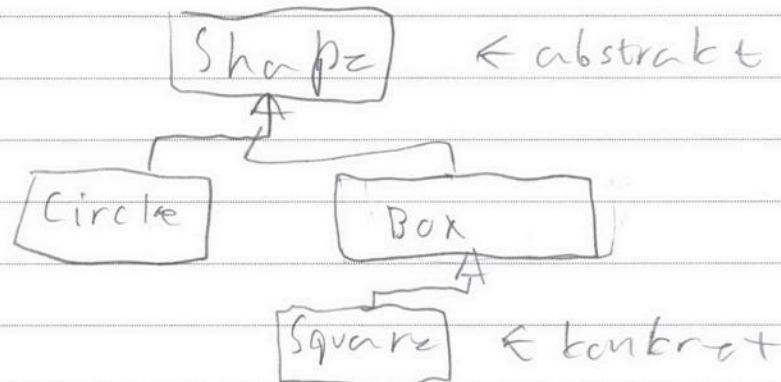 Shape ← abstrakt
Circle Box
Square ← konkret